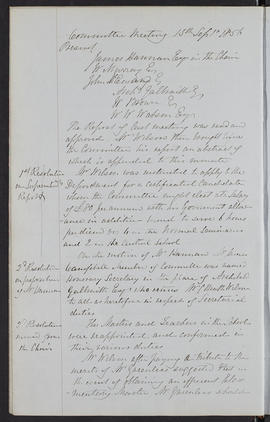 Committee Meeting 15th Sept 1856
Present
James Hannan Esq in the Chair
W. Murray Esq
John McCowand Esq
Archd Galbraith Esq
W. Brown Esq
W. W. Watson Esq
The Report of last meeting was read and
approved Mr Wilson then brought before
the Committee his report an abstract of
which is appended to this minute
1st Resolution
on
Report
Mr Wilson was instructed to apply to the
Department for a certificated Candidate
whom the Committee might elect at a Salary
of £ per annum with Government allow-
ance in addition bound to serve 6 hours
per diem viz 4 in the Normal Seminaries
and 2 in the Central School
2d Resolution
on proposition
of Mr Hannan
On the motion of Mr Hannan Mr James
Campbell Member of Committee was named
Honorary Secretary in the place of Archibald
Galbraith Esq who retires Mr J Heath Wilson
to act as heretofore in respect of Secretarial
duties
3d Resolution
moved from
the Chair
The Master and Teachers in the School
were reappointed and confirmed in
their various duties
Mr Wilson after paying a tribute to the
merits of Mr Greenlees suggested that in
the event of obtaining an efficient Ele-
mentary Master Mr Greenlees should